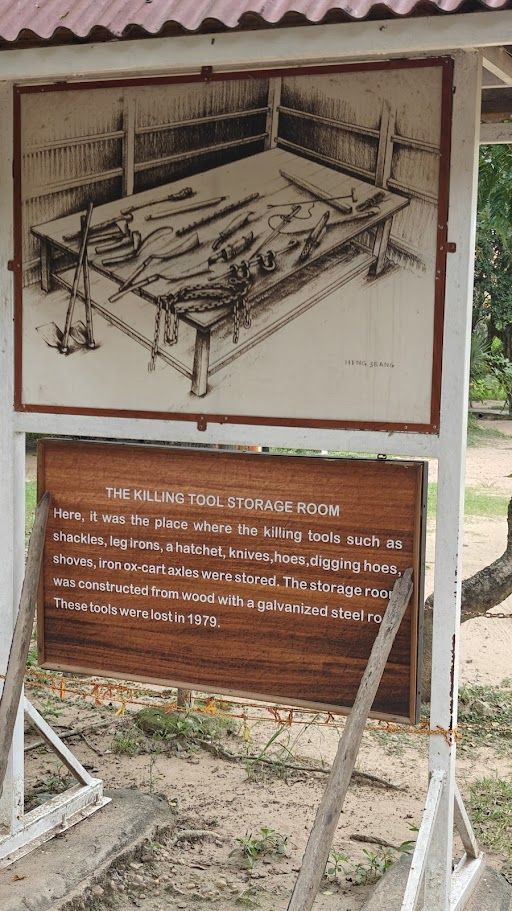 HENG SEANG
THE KILLING TOOL STORAGE ROOM
Here, it was the place where the killing tools such as
shackles, leg irons, a hatchet, knives,hoes,digging hoes,
shoves, iron ox-cart axles were stored. The storage
was constructed from wood with a galvanized steel
These tools were lost in 1979.